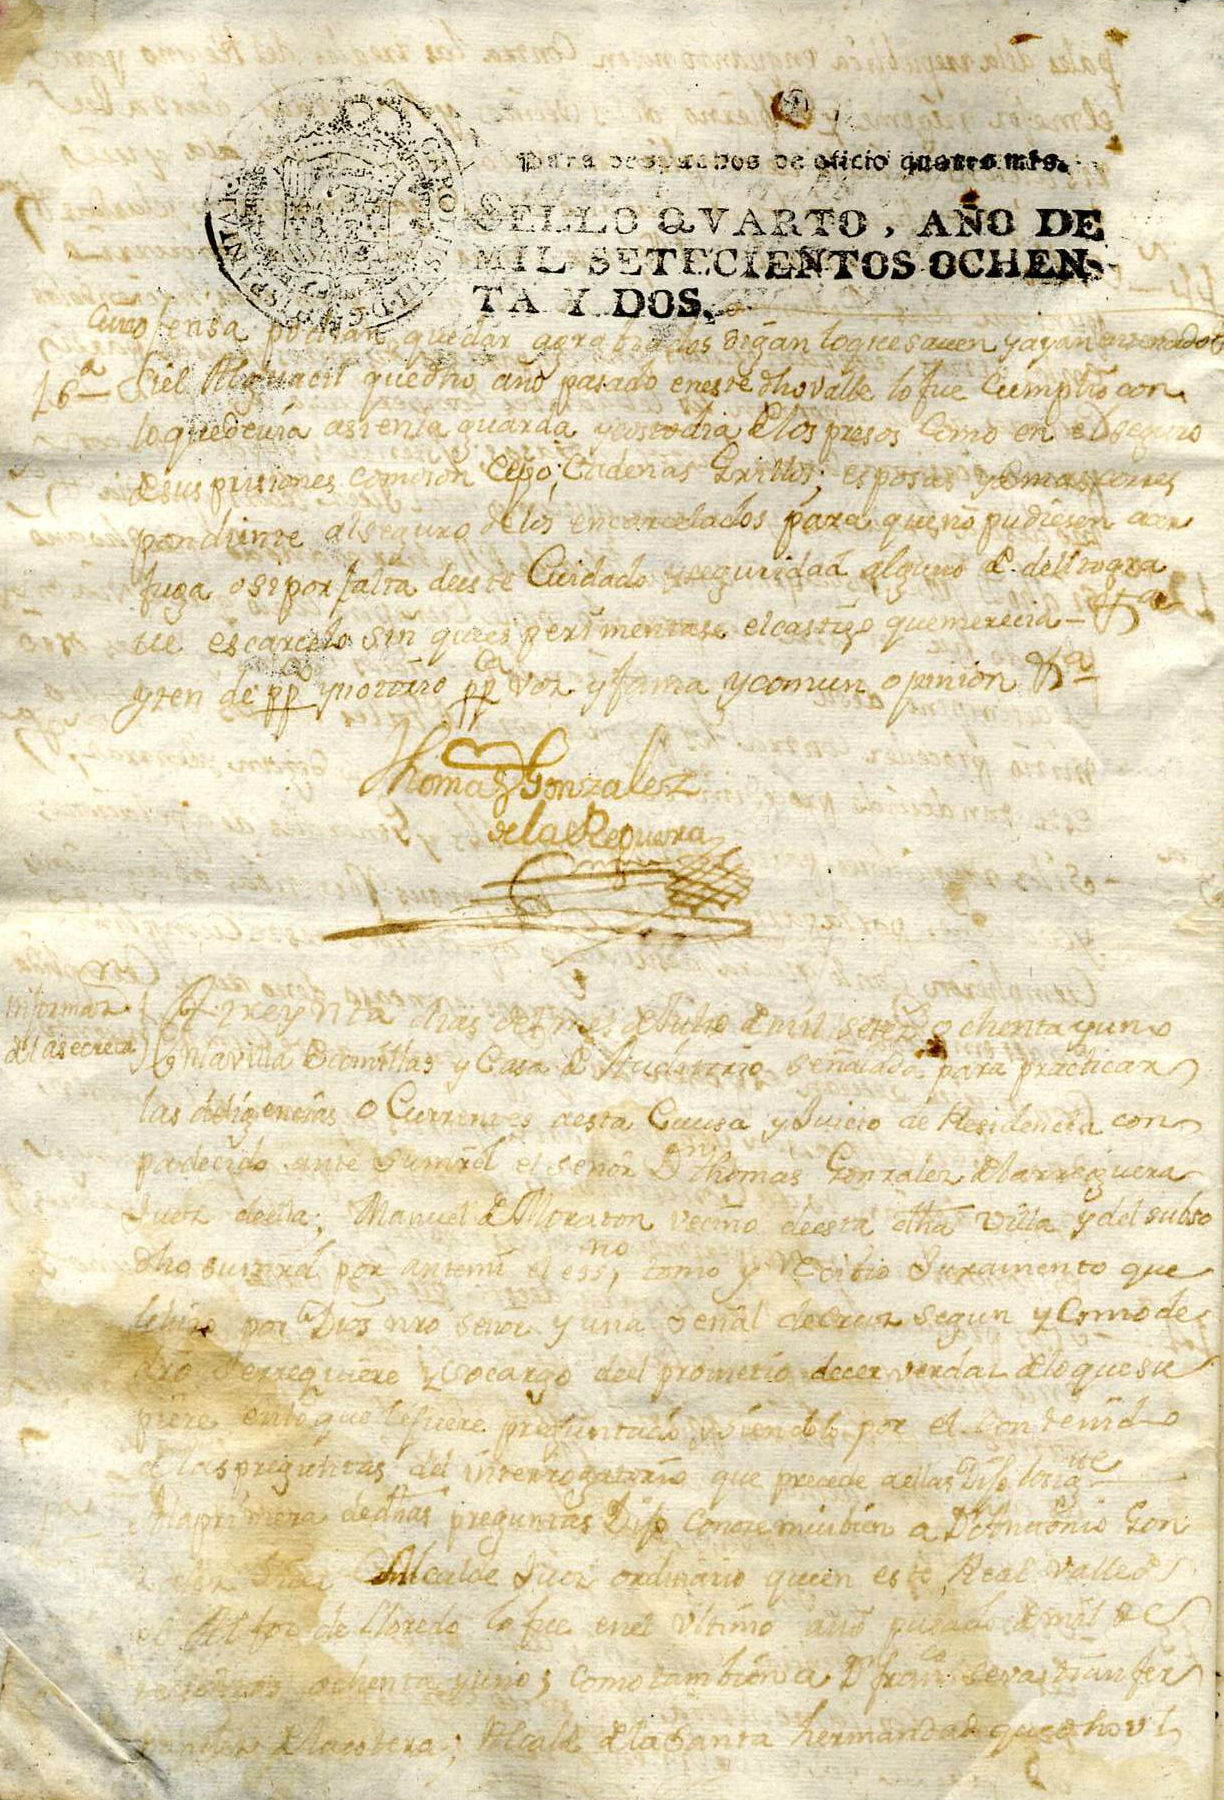 Para despachos de oficio quatro mrs.
SELLO QVARTO, AÑO DE
MIL SETECIENTOS OCHEN-
TA Y DOS.
CAROLUS III D G HISPANIAR
ofensa podian quedar agrabiados digan lo que saven y ayan entendido
16ª Si el Alguacil que dho año pasado en este dho valle lo fue Cumplio con
lo que devia asi en la guarda y costodia de los presos Como en el seguro
de sus prisiones como son Cepo; Cadenas Grillos; esposas y demas corres
pondiente al seguro de los encarcelados para que no pudiesen acer
fuga o si por falta de este Cuidado y seguridad alguno
escarcelo sin que esperimentase el castigo que merecia
yten de ppco y notorio ppca voz y fama y comun opinion
Thomas Gonzalez
de la Reguera
Informaz.
de la secreta
A treynta dias del mes de Julio de mil setezs ochenta y uno
en la villa de Comillas y Casa de Auditorio señalada para practicar
las diligencias o Currentes a esta Causa y Juicio de Residencia con
padecido ante su mrd el señor Dn Thomas Gonzalez de la rreguera
Juez de ella; Manuel de Moraton vecino de esta dha villa y del suso
dho su mrd por antemi el essno, tomo y Recibio Juramento que
le hizo por Dios nro señor y una señal de Cruz segun y Como de
dro se rrequiere y so cargo de el prometio decer verdad de lo que su
piere en lo que le fuere preguntado y siendolo por el Contenido
de las preguntas del interrogatorio que precede a ellas Dijo lo sigue
A la primera de dhas preguntas Dijo Conoce mui bien a Dn Antonio Gon
Alcalde Juez ordinario quien este Real valle de
el Alfoz de Lloredo lo fue en el Ultimo año pasado de mil se
tecientos ochenta y uno; como tambien a Dn Franco Sevastian Fer
nandez de la cotera; Alcalde de la Santa hermandad que dho vl